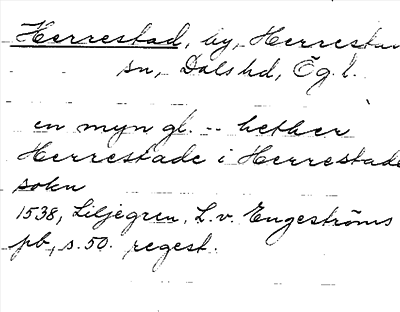 Herrestad, by, Herrestads
sn, Dals hd, Ög. l.
en myn gl. -- hether
Herrestade i Herrestade
sokn
1538, Liljegren, L. v. Engeströms
pb, s. 50. regest.